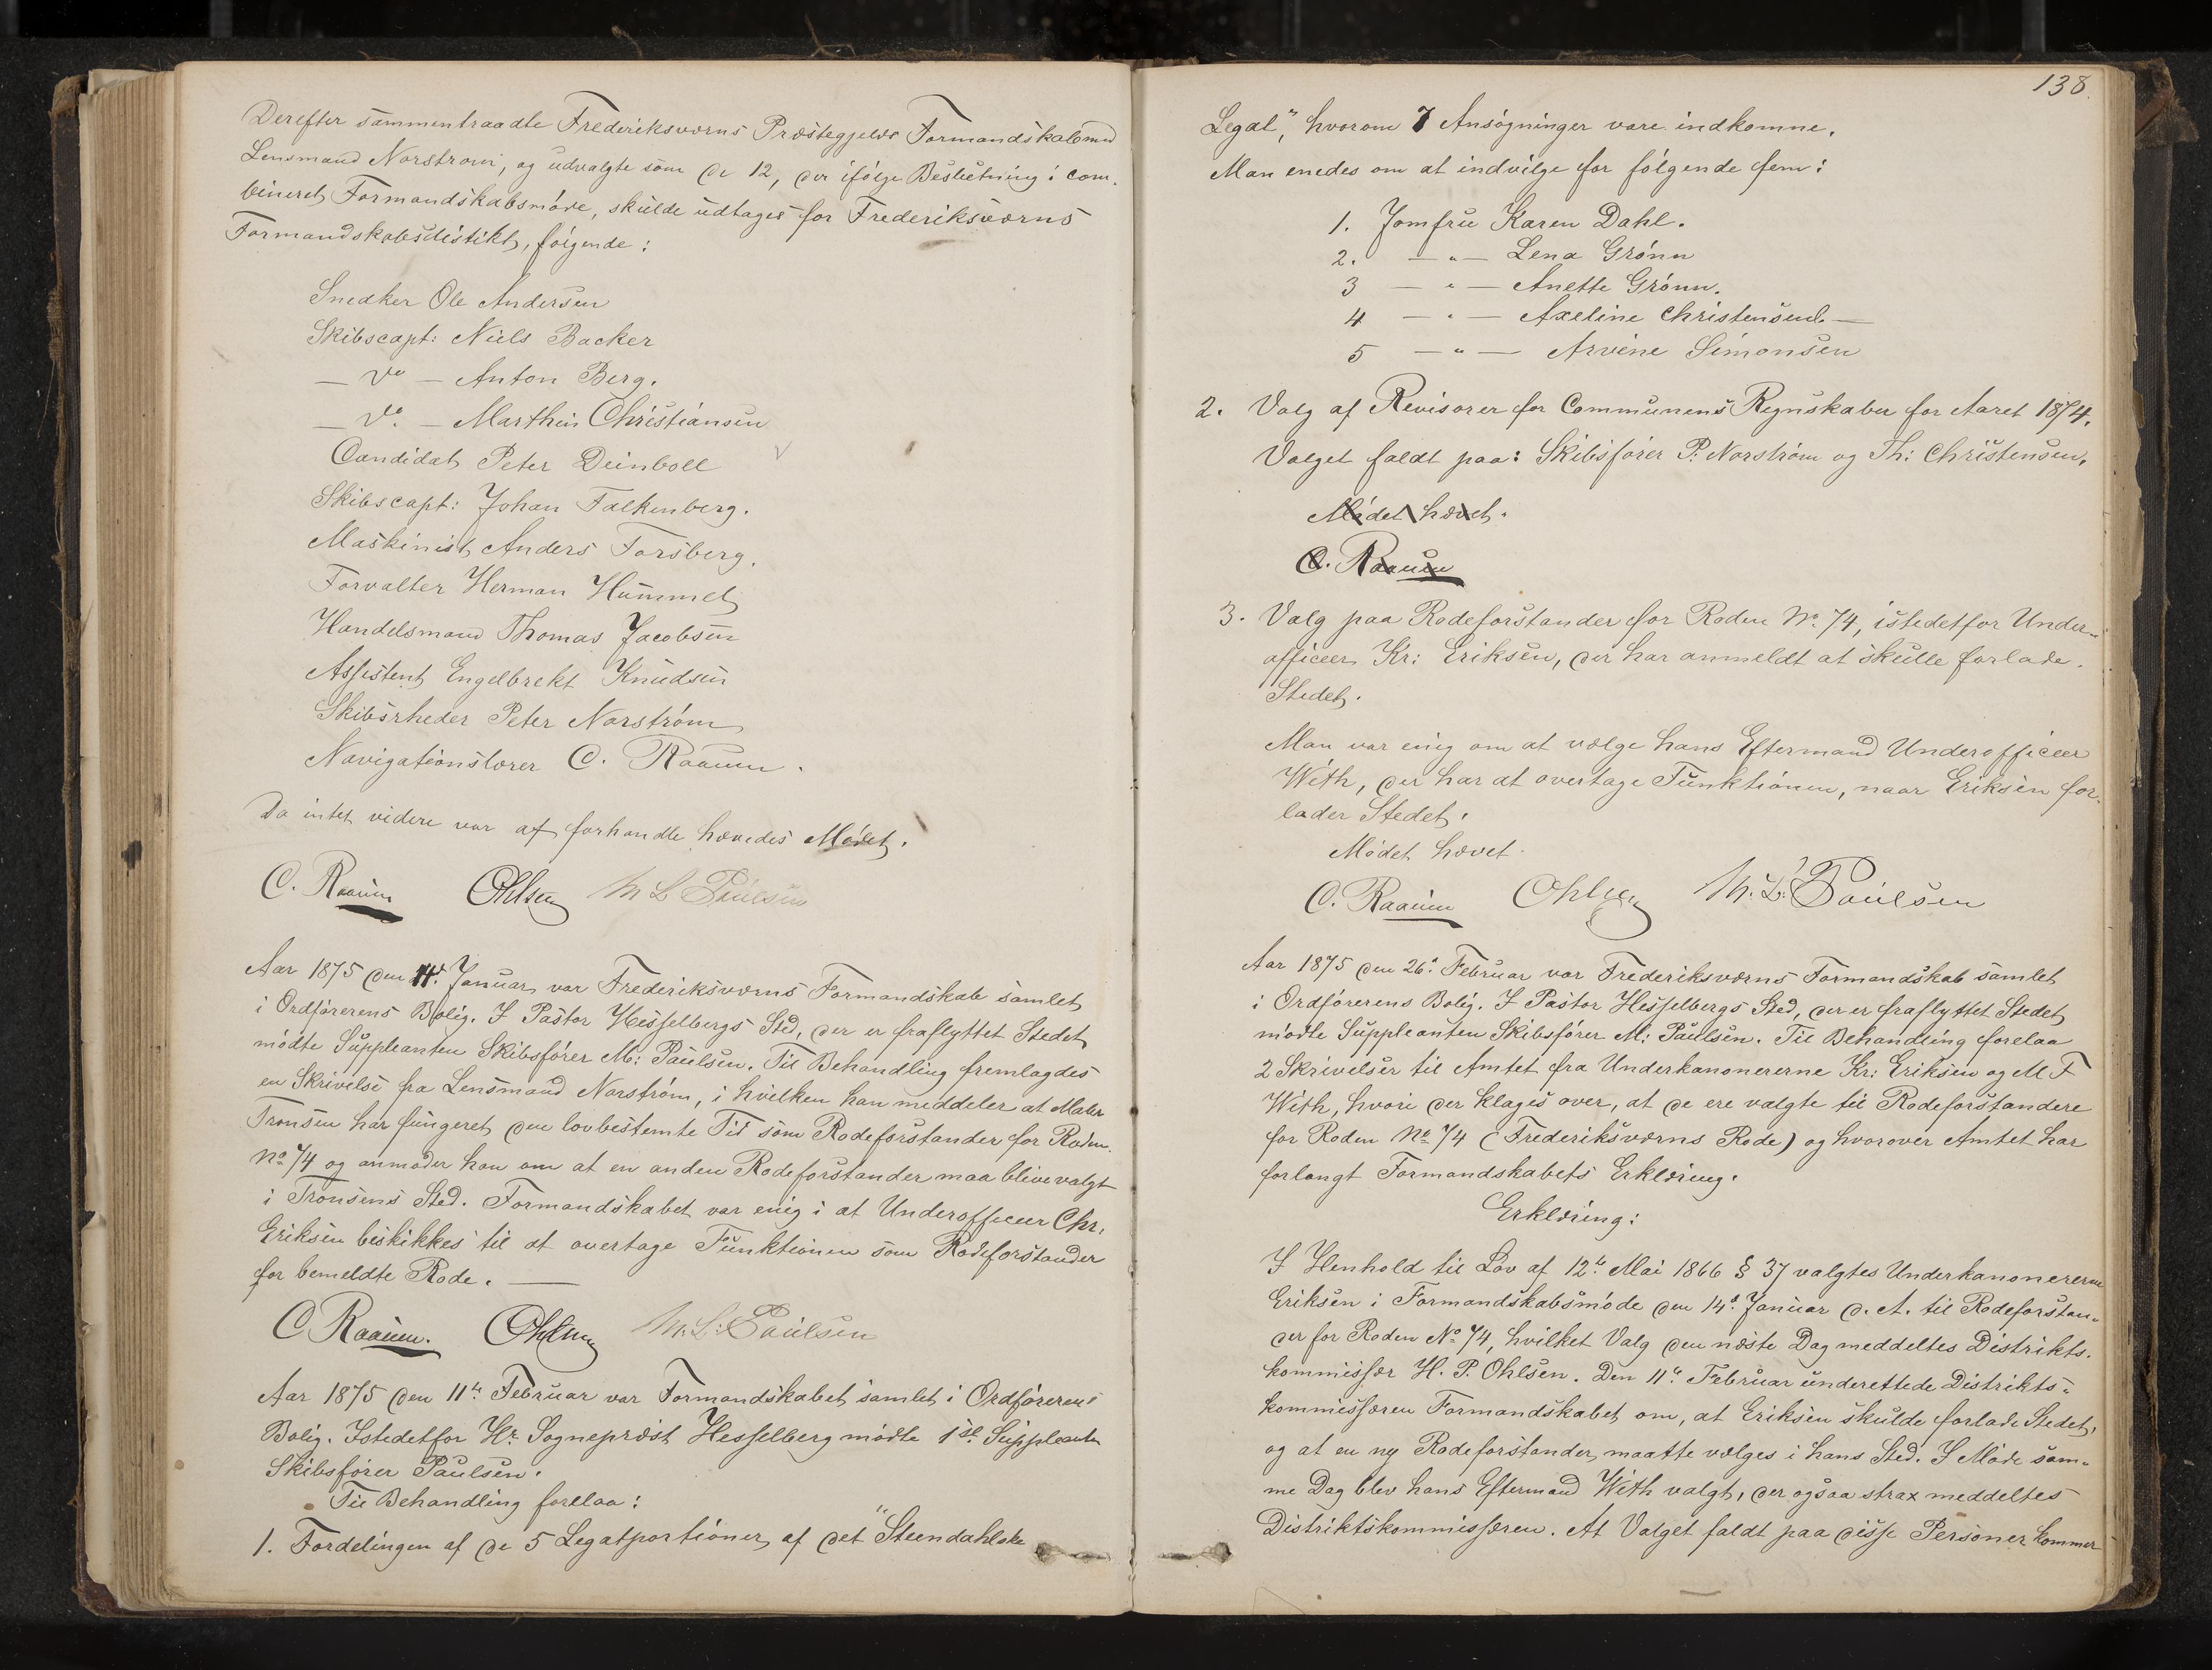 Derefter sammentraadte Frederiksværns Præstegjelds Formandskab med
Lensmand Norstrøm, og udvalgte som de 12, der ifølge Beslutning i com-
bineret Formandskabsmøde, skulde udtages for Frederiksværns
Formandskabsdistikt, følgende:
Snedker Ole Andersen
Skibscapt: Niels Backer
— do — Anton Berg.
— do. — Marthin Christiansen
Candidat Peter Deinboll
Skibscapt: Johan Falkenberg.
Maskinist Anders Forsberg.
Forvalter Herman Hummel
Handelsmand Thomas Jacobsen
Assistent Engelbrekt Knudsen
Skibsrheder Peter Norstrøm
Navigationslærer C. Raauum.
Da intet videre var at forhandle hævedes Mødet.
C. Raauum Ohlsen M L Paulsen
Aar 1875 den 14d. Januar var Frederiksværns Formandskab samlet
i Ordførerens Bolig. I Pastor Hesselbergs Sted, der er fraflyttet Stedet
mødte Suppleanten Skibsfører M: Paulsen. Til Behandling fremlagdes
en Skrivelse fra Lensmand Norstrøm, i hvilken han meddeler at Maler
Tronsen har fungeret den lovbestemte Tid som Rodeforstander for Roden
No 74 og anmoder han om at en anden Rodeforstander maa blive valgt
i Tronsens Sted. Formandskabet var enig i at Underofficeer Chr.
Eriksen beskikkes til at overtage Funktionen som Rodeforstander
for bemeldte Rode. —
C Raauum. Ohlsen M. L: Paulsen
Aar 1875 den 11te Februar var Formandskabet samlet i Ordførerens
Bolig. Istedetfor Hr. Sogneprest Hesselberg mødte 1ste Suppleant
Skibsfører Paulsen.
Til Behandling forelaa:
1. Fordelingen af de 5 Legatportioner af det "Steendahlske
138.
Legat", hvorom 7 Ansøgninger vare indkomne.
Man enedes om at indvilge for følgende fem:
1. Jomfru Karen Dahl.
2. — " — Lena Grønn
3 — " — Anette Grønn.
4 — " — Axeline Christensend. —
5 — " — Arvine Simonsen
2. Valg af Revisorer for Communens Regnskaber for Aaret 1874.
Valget faldt paa: Skibsfører P: Norstrøm og Th: Christensen.
Mødet hævet.
C. Raauum
3. Valg paa Rodeforstander for Roden No. 74, istedetfor Under-
officeer Kr: Eriksen, der har anmeldt at skulle forlade
Stedet.
Man var enig om at vælge hans Eftermand Underofficeer
With, der har at overtage Funktionen, naar Eriksen for-
lader Stedet.
Mødet hævet.
C. Raauum Ohlsen M. L: Paulsen
Aar 1875 den 26d. Februar var Frederiksværns Formandskab samlet
i Ordførerens Bolig. I Pastor Hesselbergs Sted, der er fraflyttet Stedet
mødte Suppleanten Skibsfører M: Paulsen. Til Behandling forelaa
2 Skrivelser til Amtet fra Underkanonererne Kr: Eriksen og M F
With, hvori der klages over, at de ere valgte til Rodeforstandere
for Roden No 74 (Frederiksværns Rode) og hvorover Amtet har
forlangt Formandskabets Erklæring.
Erklæring:
I Henhold til Lov af 12te Mai 1866 § 37 valgtes Underkanonererne
Eriksen i Formandskabsmøde den 14d. Januar d. A. til Rodeforstan-
der for Roden No 74, hvilket Valg den næste Dag meddeltes Distrikts-
kommissær H. P. Ohlsen. Den 11te Februar underettede Distrikts-
kommissæren Formandskabet om, at Eriksen skulde forlade Stedet,
og at en ny Rodeforstander maatte vælges i hans Sted. I Møde sam-
me Dag blev hans Eftermand With valgt, der ogsaa strax meddeltes
Distriktskommissæren. At Valget faldt paa disse Personer kommer